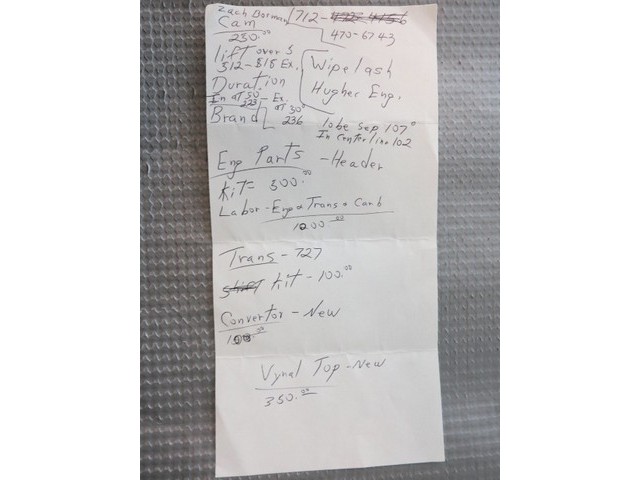 Zach Borman 1712-
Cam 470-6743
230.00
lift over s
512-518 Ex. Wipelash
Duration Hughec Eng.
In at 50 - Ex.
223 at 50°
Brand 236 lobe Sep 107°
In Centerline 102
Eng Parts - Header
Kit= 300.00
Labor - Eng & Trans & Carb
1200.00
Trans - 727
shift kit - 100.00
Convertor - New
Vynal Top - New
350.00